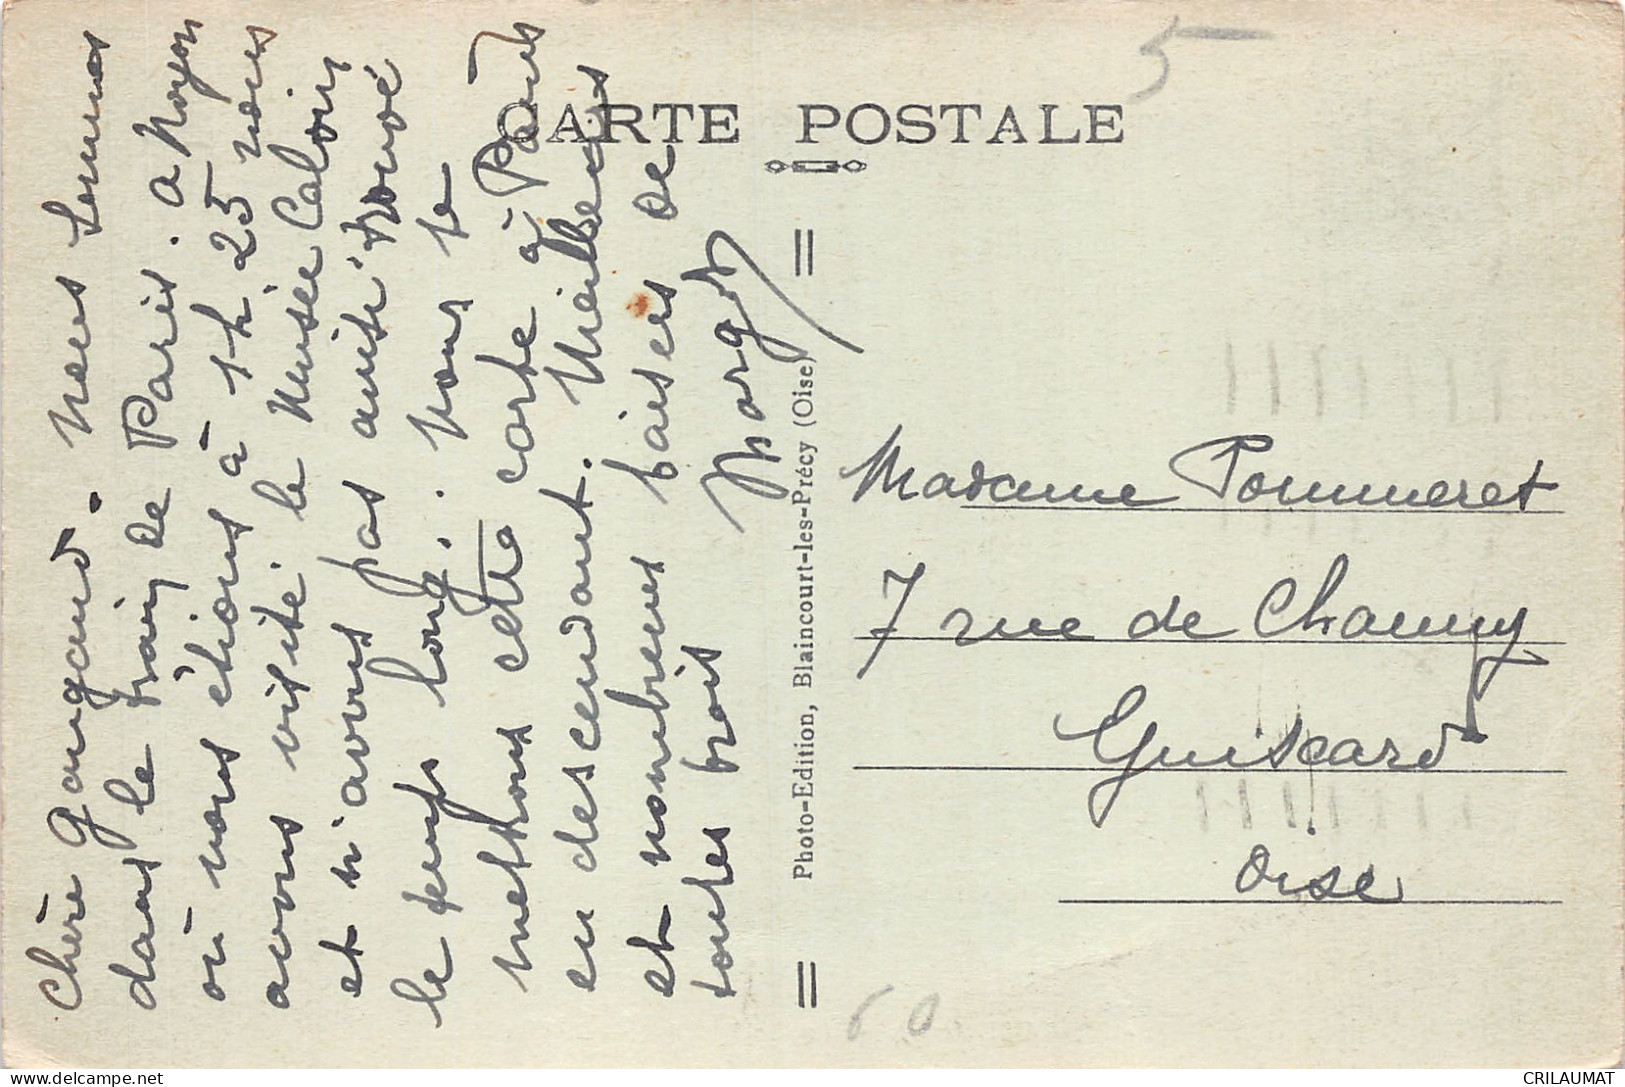 CARTE POSTALE
5
Chère Gangand. Nous sommes
dans le train de Paris. A Noyon
où nous étions à 1h 25 nous
avons visité le Musée Calvin
et n'avons pas ainsi trouvé
le temps long. Nous te
mettrons cette carte à Paris
en descendant. Meilleurs
et nombreux baisers de
toutes trois
Margot
Photo-Edition, Blaincourt-les-Précy (Oise)
Madame Pommeret
7 rue de Chauny
Guiscard
Oise
60
CRILAUMAT